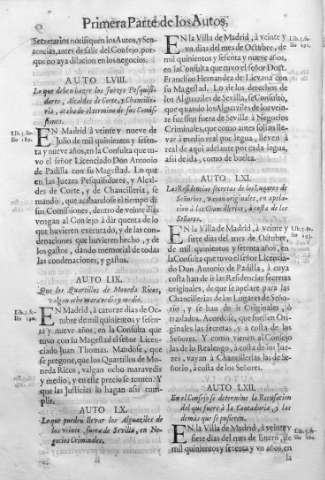 Primera Parte de los Autos,
Secretarios notifiquen los Autos, y Sentencias
antes de salir del Consejo, porque
no aya dilacion en los negocios.
AUTO LVIII.
Lo que deben hazer los Juezes Pesquisidores,
Alcaldes de Corte, y Chancilleria,
acabado el termino de sus Comissiones.
EN Madrid à veinte y nueve de
Julio de mil quinientos y setenta
y nueve años, en la Consulta que tuvo
el señor Licenciado Don Antonio
de Padilla con su Magestad. Lo que
en los Juezes Pesquisidores, y Alcaldes
de Corte, y de Chancilleria, se
mandò, que acabandose el tiempo de
sus Comissiones, dentro de veinte dias
vengan al Consejo à dàr quenta de lo
que huvieren executado, y de las condenaciones
que huvieren hecho, y de
los gastos, dando memorial de todas
las condenaciones, y gastos.
AUTO LIX.
Que los Quartillos de Moneda Ricos,
valgan ocho maravedis y medio.
EN Madrid, à catorze dias de Octubre
de mil quinientos y setenta
y nueve años, en la Consulta que
tuvo con su Magestad el señor Licenciado
Juan Thomas. Mandòse, que
se pregone, que los Quartillos de Moneda
Ricos, valgan ocho maravedis
y medio, y en esse precio se tomen. Y
que las Justicias lo hagan assi cumplir.
AUTO LX.
Lo que pueden llevar los Alguaziles de
los veinte, fuera de Sevilla, en Negocios
Criminales.
EN la Villa de Madrid, à veinte y
un dias del mes de Octubre, de
mil quinientos y setenta y nueve años,
en la Consulta que tuvo el señor Doct.
Francisco Hernandez de Lievana con
su Magestad. Lo de los derechos de
los Alguaziles de Sevilla, se Consultò,
que quando los Alguaziles de los veinte
fuessen fuera de Sevilla à
Negocios Criminales, que como antes solian llevar
à medio real por legua, lleven à
real de aqui adelante por cada legua,
assi de ida, como de buelta.
AUTO LXI.
Las Residencias secretas de los Lugares de
Señorio, vayan originales, en apelacion
à las Chancillerias, à costa de los
Señores.
EN la Villa de Madrid, à veinte y
siete dias del mes de Octubre,
de mil quinientos y setenta años, en
la Consulta que tuvo el señor Licenciado
Don Antonio de Padilla, à cuya
costa han de ir las Residencias secretas
de que se apelare para las
Chancillerias de los Lugares de Señorio,
y se han de ir Originales, ò
trasladas. Acordòse, que fuessen Originales
las secretas, y à costa de los
Señores. Y como vienen al Consejo
las de lo Realengo, à costa de los Juezes,
vayan à Chancillerias las de Señorio,
à costa de los Señores.
AUTO LXII.
En el Consejo se determine la Recusacion
del que fuere à la Contaduria, y las
demàs que se pusieren.
EN la Villa de Madrid, à veinte y
siete dias del mes de Enero, de
mil quinientos y setenta y un años, en
la